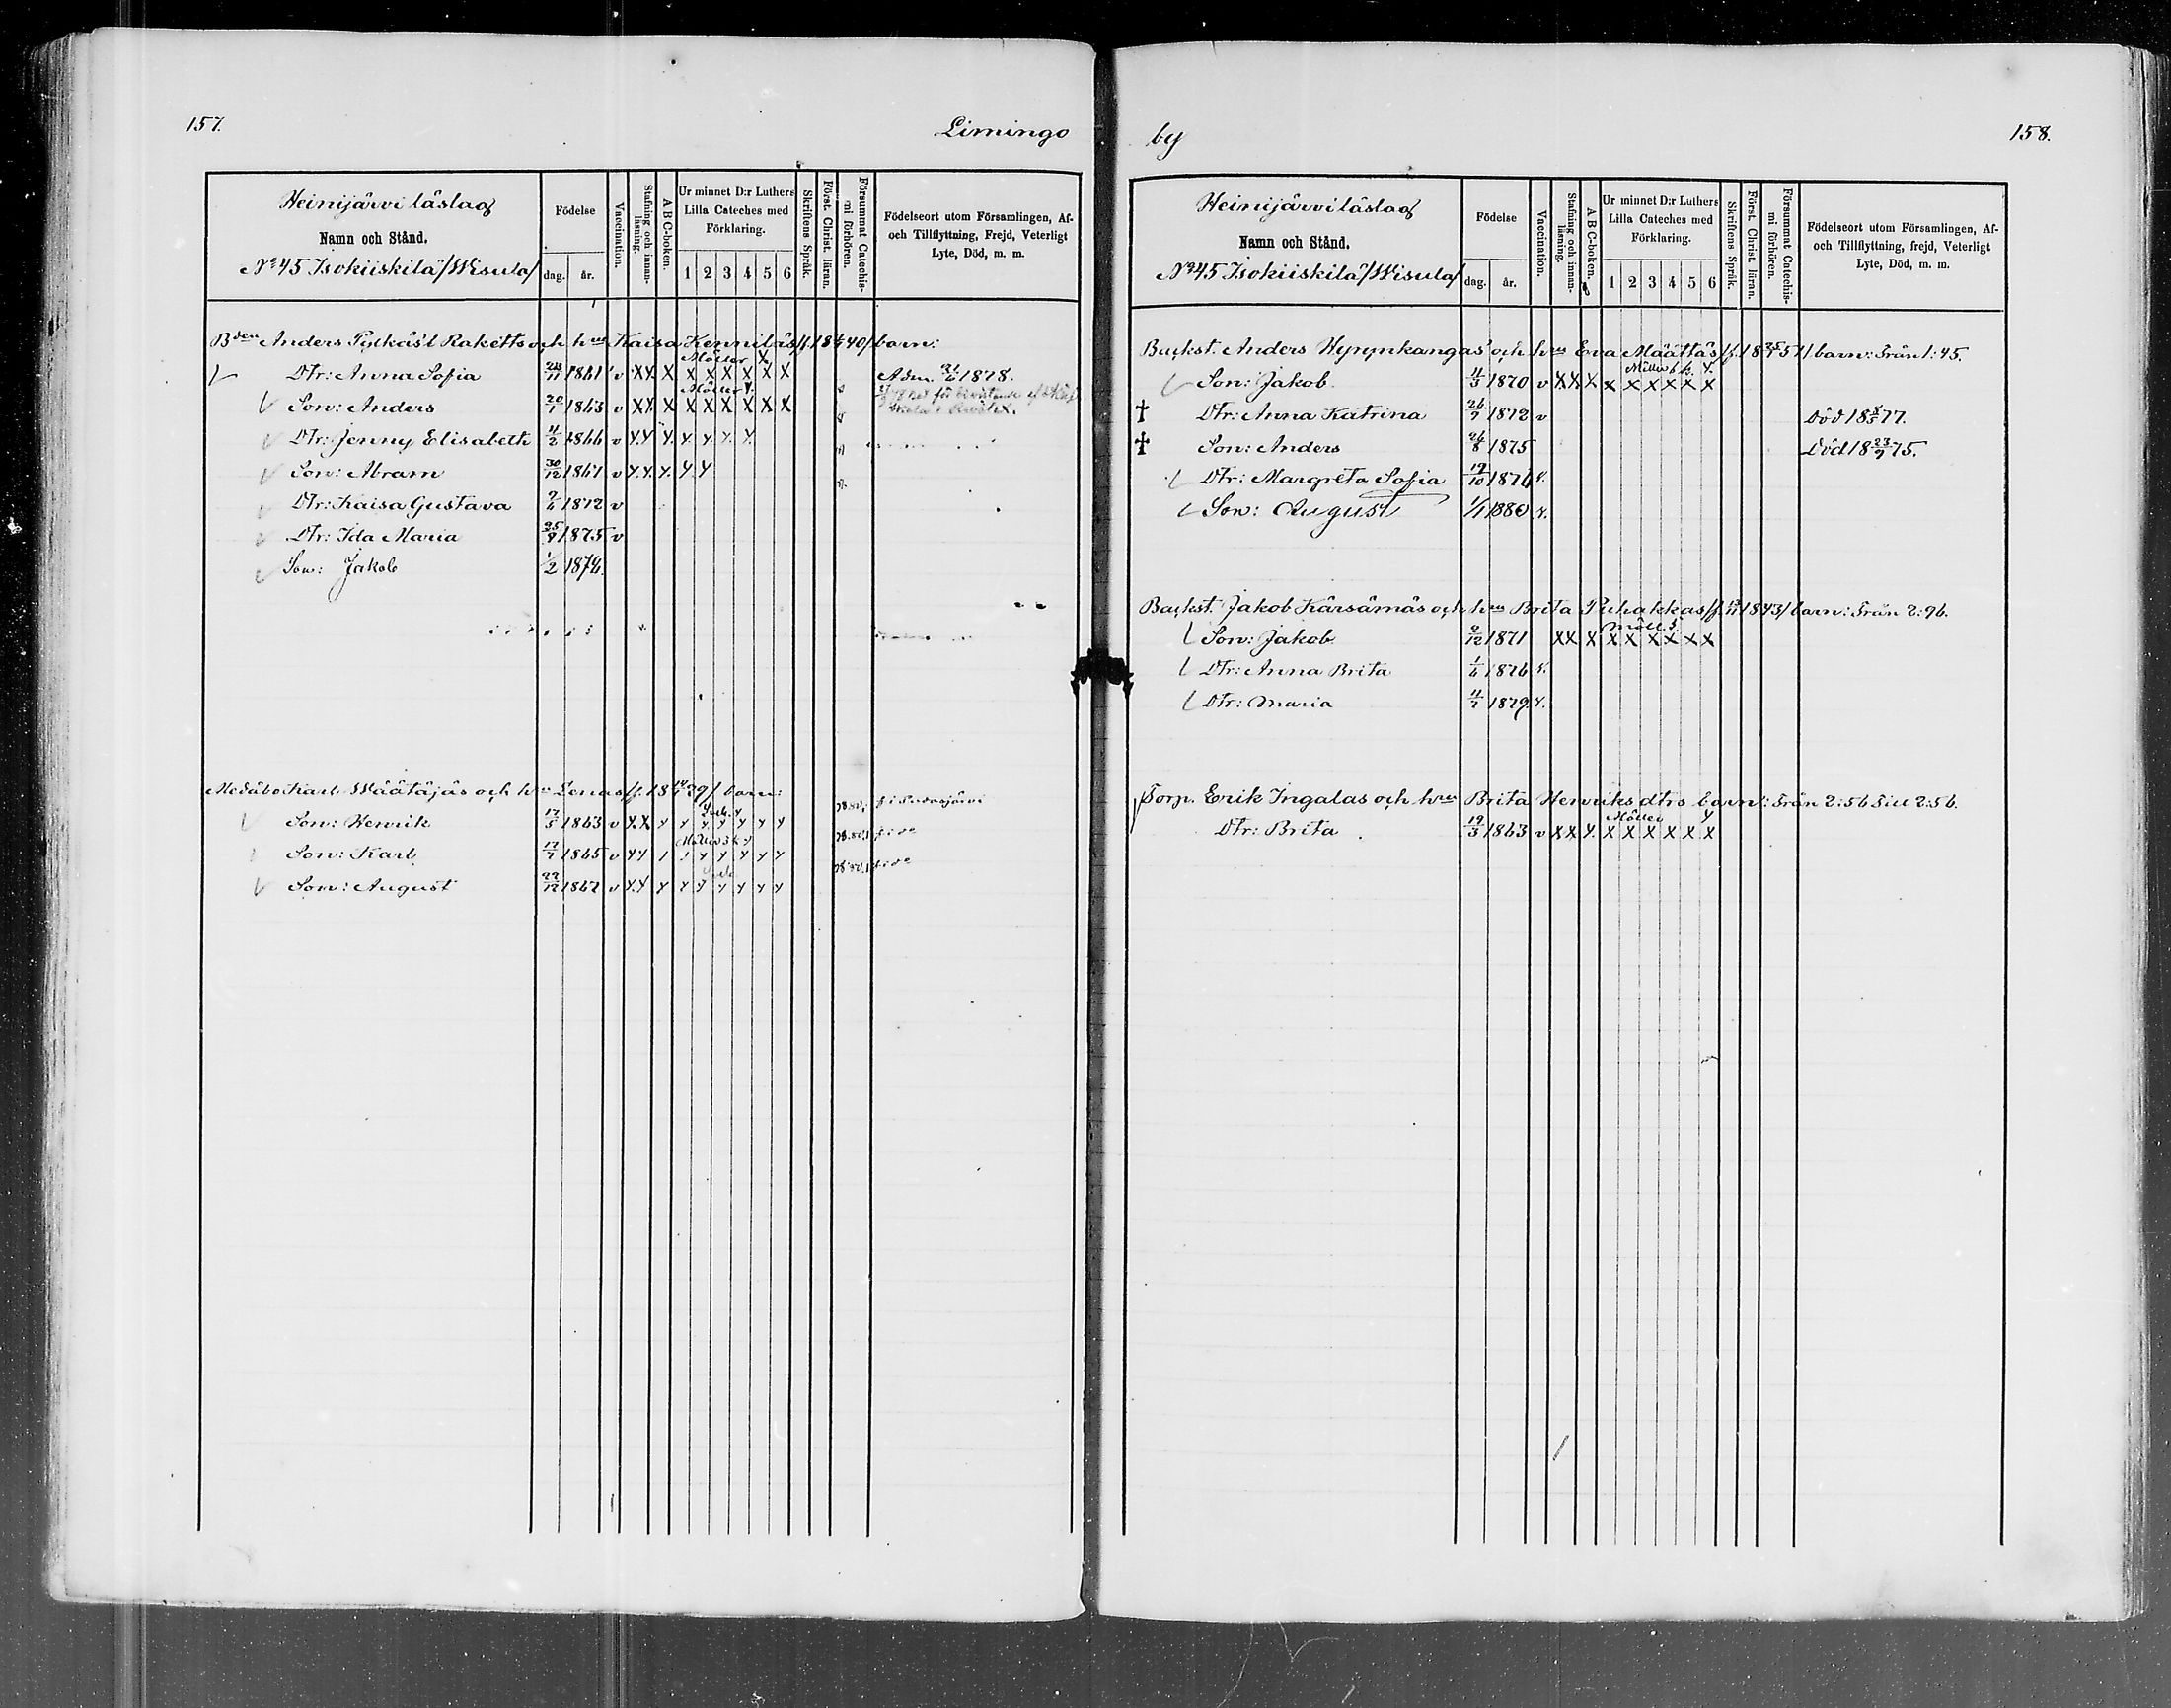 157.
Limingo
Heinijärvi läslag
Namn och Stånd.
No 45 Isokiiskilä /Wisula/
Födelse
dag. år.
Vaccination.
Stafning och innan-läsning.
A B C-boken.
Ur minnet D:r Luthers Lilla Cateches med Förklaring.
1 2 3 4 5 6
Skriftens Språk.
Först. Christ. läran.
Försummat Catechis-mi förhören.
Födelseort utom Församlingen, Af- och Tillflyttning, Frejd, Veterligt Lyte, Död, m. m.
Bden Anders Pylkäs l. Raketts och hus Kaisa Kenniläs /f. 18 40/ barn:
Möller X
Dtr: Anna Sofia 1861 v XX X X X X X X X Adm. 21/6 1878.
Möller
Son: Anders 20/1 1863 v XX X X X X X X X
Dtr: Jenny Elisabeth 11/2 1866 v
Son: Abram 30/12 1867 v
Dtr: Kaisa Gustava 1872 v
Dtr: Ida Maria 25/9 1875 v
Son: Jakob 1/2 1878.
Karl Määtäjäs och Lenas barn:
Son: Henrik 17/5 1863 v
Möller
Son: Karl 17/7 1865 v
Son: August 22/12 1867 v
by
158.
Heinijärvi läslag
Namn och Stånd.
No 45 Isokiiskilä /Wisula/
Födelse
dag. år.
Vaccination.
Stafning och innan-läsning.
A B C-boken.
Ur minnet D:r Luthers Lilla Cateches med Förklaring.
1 2 3 4 5 6
Skriftens Språk.
Först. Christ. läran.
Försummat Catechis-mi förhören.
Födelseort utom Församlingen, Af- och Tillflyttning, frejd, Veterligt Lyte, Död, m. m.
Backst. Anders Hyypnkangas och hus Eva Määttäs /f. 18 51/ barn: Från 1:45.
Son: Jakob 11/3 1870 v XX X X X X X X X
† Dtr: Anna Katrina 26/7 1872 v Död 18 8/5 77.
† Son: Anders 26/8 1875 Död 18 23/9 75.
Dtr: Margreta Sofia 19/10 1876 v.
Son: August 1/1 1880 v.
Backst. Jakob Kärsämäs och hus Brita Puhakkas /f. 1843/ barn: Från 2:96.
Möll.
Son: Jakob 2/12 1871 XX X X X X X X X
Dtr: Anna Brita 1/6 1876 v.
Dtr: Maria 11/7 1879 v.
Torp. Erik Ingalas och hus Brita Henriksdtrs barn: Från 2:56 Till 2:56.
Möller
Dtr: Brita 19/3 1863 v XX X. X X X X X X